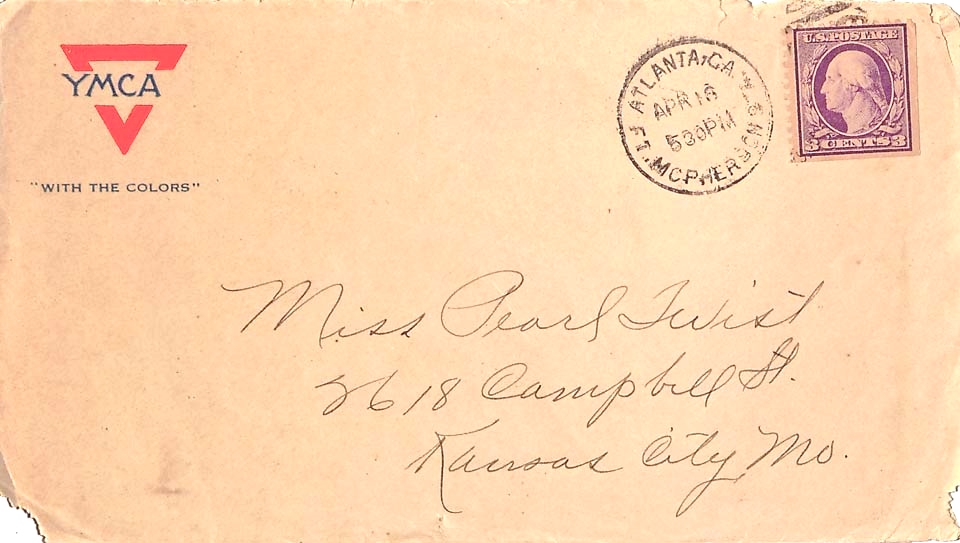 YMCA
"WITH THE COLORS"
ATLANTA, GA.
APR 16
530PM
FT. MCPHERSON
U.S. POSTAGE
3 CENTS 3
Miss Pearl Twist
2618 Campbell St.
Kansas City Mo.